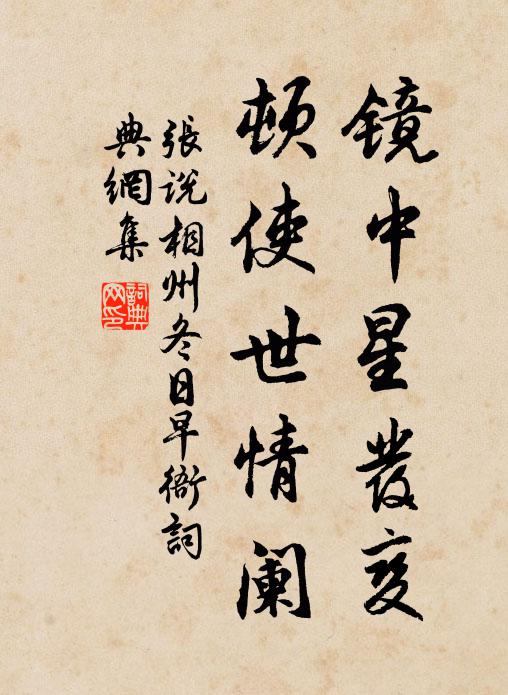 镜中星发变
顿使世情阑
張说相州冬日早衙詞
典網集
詞典网印